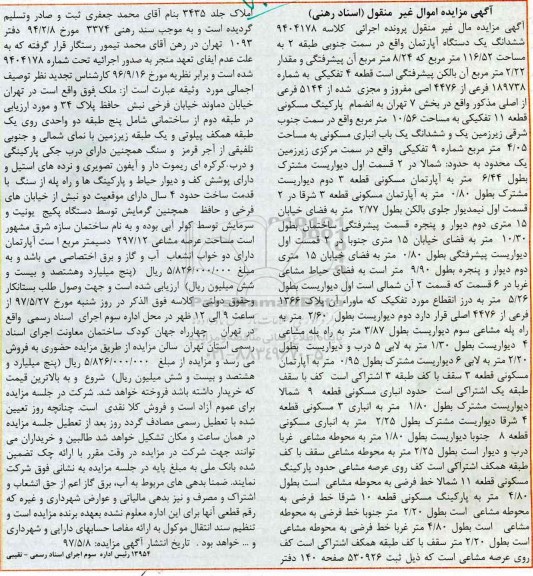 آگهی مزایده اموال غیر منقول (اسناد رهنی)
آگهی مزایده مال غیر منقول پرونده اجرائی کلاسه ۹۴۰۴۱۷۸
ششدانگ یک دستگاه آپارتمان واقع در سمت جنوبی طبقه ۲ به
مساحت ۱۱۶/۵۲ متر مربع که ۸/۲۴ متر مربع آن پیشرفتگی و مقدار
۲/۲۲ متر مربع آن بالکن پیشرفتگی است قطعه ۴ تفکیکی به شماره
۱۸۹۷۳۸ فرعی از ۴۴۷۶ اصلی مفروز و مجزی شده از ۵۱۴۴ فرعی
از اصلی مذکور واقع در بخش ۷ تهران به انضمام پارکینگ مسکونی
قطعه ۱۱ تفکیکی به مساحت ۱۰/۵۶ متر مربع واقع در سمت جنوب
شرقی زیرزمین یک و ششدانگ یک باب انباری مسکونی به مساحت
۴/۰۵ متر مربع شماره ۹ تفکیکی واقع در سمت مرکزی زیرزمین
یک محدود به حدود: شمالا در ۲ قسمت اول دیواریست مشترک
بطول ۶/۴۴ متر به آپارتمان مسکونی قطعه ۳ دوم دیواریست
مشترک بطول ۰/۸۰ متر به آپارتمان مسکونی قطعه ۳ شرقا در ۲
قسمت اول نیمدیوار جلوی بالکن بطول ۲/۷۷ متر به فضای خیابان
۱۵ متری دوم دیوار و پنجره قسمت پیشرفتگی است بطول
۱۰/۳۰ متر به فضای خیابان ۱۵ متری جنوبا در ۲ قسمت اول
دیواریست پیشرفتگی بطول ۰/۸۰ متر به فضای خیابان ۱۵ متری
دوم دیوار و پنجره بطول ۹/۹۰ متر است به فضای حیاط مشاعی
غربا در ۶ قسمت که قسمت ۲ آن شمالی است اول دیواریست بطول
۵/۲۶ متر به درز انقطاع مورد تفکیک که ماوراء آن پلاک ۱۳۶۶
فرعی از ۴۴۷۶ اصلی قرار دارد دوم دیواریست بطول ۲/۶۰ متر به
راه پله مشاعی سوم دیواریست بطول ۳/۸۷ متر به راه پله مشاعی
۴ دیواریست بطول ۱/۳۰ متر به لابی ۵ درب و دیواریست بطول
۲/۲۰ متر به لابی ۶ دیواریست مشترک بطول ۰/۹۵ متر به آپارتمان
مسکونی قطعه ۳ سقف با کف طبقه ۳ اشتراکی است کف با سقف
طبقه یک اشتراکی است حدود انباری مسکونی قطعه ۹ شمالا
دیواریست مشترک بطول ۱/۸۰ متر به انباری ۳ مسکونی قطعه
۴ شرقا دیواریست مشترک بطول ۲/۲۵ متر به انباری مسکونی
قطعه ۸ جنوبا دیواریست بطول ۱/۸۰ متر به محوطه مشاعی غربا
درب و دیوار است بطول ۲/۲۵ متر به محوطه مشاعی سقف با کف
طبقه همکف اشتراکی است کف روی عرصه مشاعی حدود پارکینگ
مسکونی قطعه ۱۱ شمالا خط فرضی به محوطه مشاعی است بطول
۴/۸۰ متر به پارکینگ مسکونی قطعه ۱۰ شرقا خط فرضی به
محوطه مشاعی است بطول ۲/۲۰ متر جنوبا خط فرضی به محوطه
مشاعی است بطول ۴/۸۰ متر غربا خط فرضی به محوطه مشاعی
است بطول ۲/۲۰ متر سقف با کف طبقه همکف اشتراکی است کف
روی عرصه مشاعی است که ذیل ثبت ۵۳۰۹۲۶ صفحه ۱۴۰ دفتر
املاک جلد ۳۴۳۵ بنام آقای محمد جعفری ثبت و صادر وتسلیم
گردیده است و به موجب سند رهنی ۳۳۷۴ مورخ ۹۴/۲/۸ دفتر
۱۰۹۳ تهران در رهن آقای محمد تیمور رستگار قرار گرفته که به
علت عدم ایفای تعهد منجر به صدور اجرائیه تحت شماره ۹۴۰۴۱۷۸
شده است و برابر نظریه مورخ ۹۶/۹/۱۶ کارشناس تجدید نظر توصیف
اجمالی مورد وثیقه عبارت است از: ملک فوق واقع است در تهران
خیابان دماوند خیابان فرخی نبش حافظ پلاک ۳۴ و مورد ارزیابی
در طبقه دوم از ساختمانی شامل پنج طبقه دو واحدی روی یک
طبقه همکف پیلوتی و یک طبقه زیرزمین با نمای شمالی و جنوبی
تلفیقی از آجر قرمز و سنگ همچنین دارای درب جکی پارکینگی
و درب کرکره ای ریموت دار و آیفون تصویری و نرده های استیل و
دارای پوشش کف و دیوار حیاط و پارکینگ ها و راه پله از سنگ با
قدمت ساخت حدود ۴ سال دارای موقعیت دو نبش از خیابان های
فرخی و حافظ همچنین گرمایش توسط دستگاه پکیج یونیت و
سرمایش توسط کولر آبی بوده و به نام ساختمان سازه شرق مشهور
است مساحت عرصه مشاعی ۲۹۷/۱۲ دسیمتر مربع است آپارتمان
دارای دو خواب انشعاب آب و گاز و برق اختصاصی می باشد و به
مبلغ ۵/۸۲۶/۰۰۰/۰۰۰ ریال (پنج میلیارد وهشتصد و بیست و
شش میلیون ریال) ارزیابی شده است و جهت وصول طلب بستانکار
وحقوق دولتی کلاسه فوق الذکر در روز شنبه مورخ ۹۷/۵/۲۷ از
ساعت ۹ الی ۱۲ ظهر در محل اداره سوم اجرای اسناد رسمی واقع
در تهران چهارراه جهان کودک ساختمان معاونت اجرای اسناد
رسمی استان تهران سالن مزایده از طریق مزایده حضوری به فروش
می رسد و مزایده از مبلغ ۵/۸۲۶/۰۰۰/۰۰۰ ریال (پنج میلیارد و
هشتصد و بیست و شش میلیون ریال) شروع و به بالاترین قیمت
که خریدار داشته باشد فروخته خواهد شد. شرکت در جلسه مزایده
برای عموم آزاد است و فروش کلا نقدی است. چنانچه روز تعیین
شده با تعطیل رسمی مصادف گردد روز بعد از تعطیل جلسه مزایده
در همان ساعت و مکان تشکیل خواهد شد طالبین و خریداران می
توانند جهت شرکت در مزایده در وقت مقرر با ارائه چک تضمین
شده بانک ملی به مبلغ پایه در جلسه مزایده به نشانی فوق شرکت
نمایند. ضمنا بدهی های مربوط به آب، برق گاز اعم از حق انشعاب و
اشتراک و مصرف و نیز بدهی مالیاتی و عوارض شهرداری و غیره که
رقم قطعی آنها برای این اداره معلوم نشده بعهده برنده مزایده است و
تنظیم سند انتقال موکول به ارائه مفاصا حسابهای دارایی و شهرداری
و ... خواهد بود . تاریخ انتشار آگهی مزایده: ۹۷/۵/۸
۱۳۹۵۴ رئیس اداره سوم اجرای اسناد رسمی - نقیبی